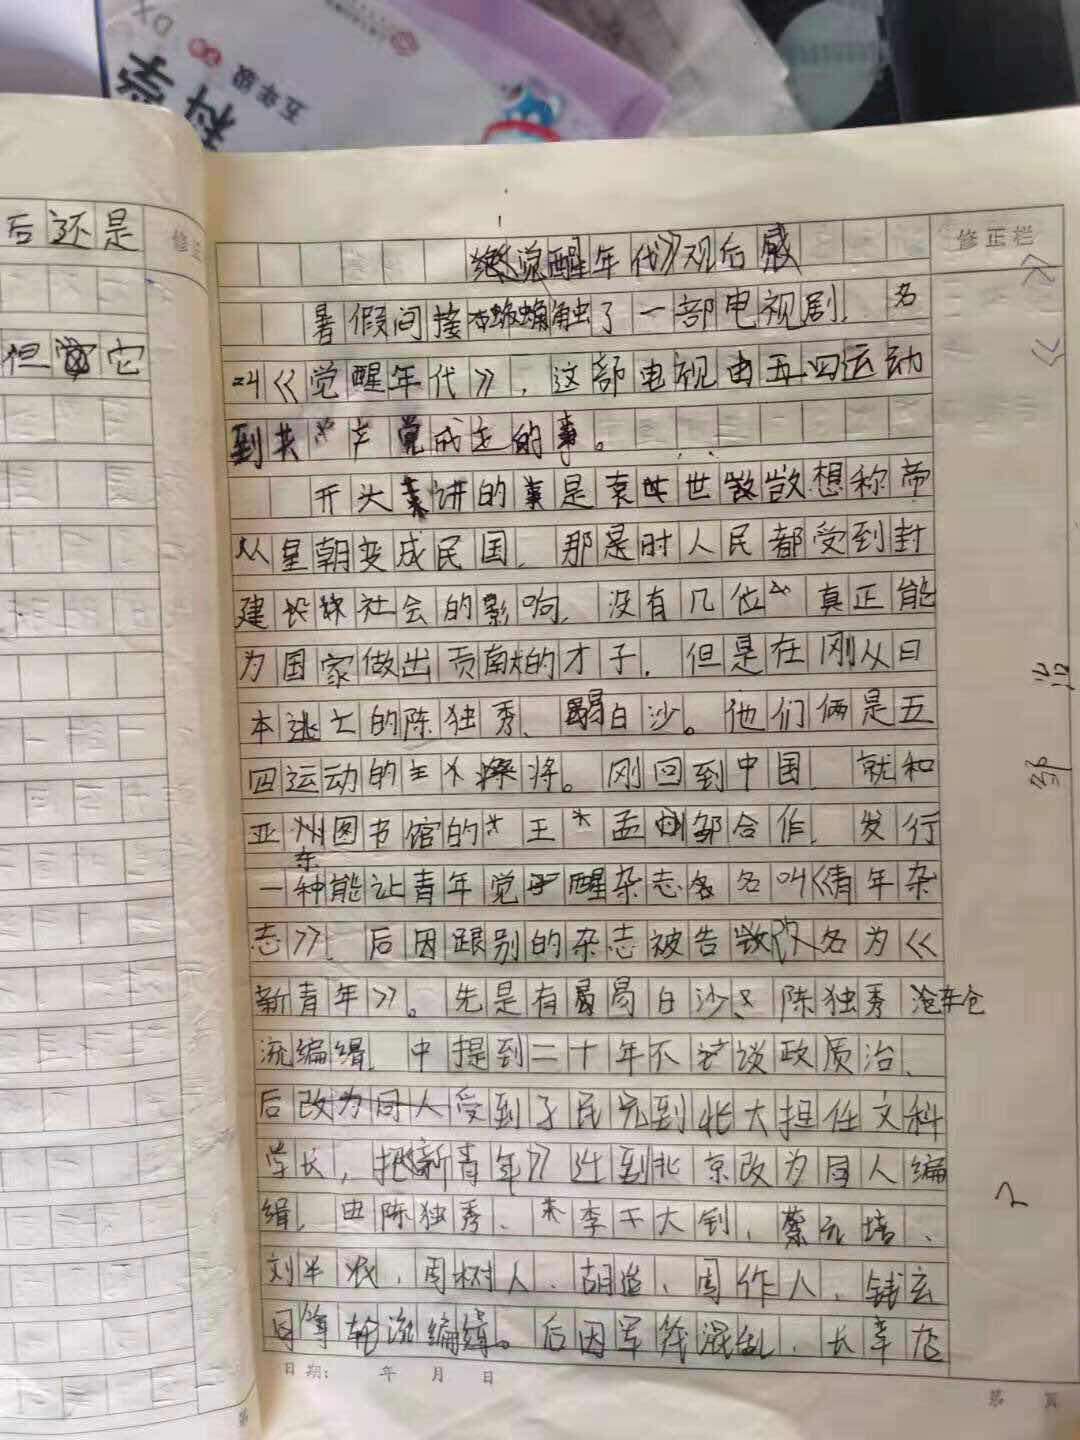 科学
五年级
DX
后还是
但它
修正栏
《觉醒年代》观后感
暑假间接触了一部电视剧，名
叫《觉醒年代》，这部电视由五四运动
到共产党成立的事。
开头讲的是袁世凯想称帝
从皇朝变成民国，那是时人民都受到封
建社会的影响，没有几位真正能
为国家做出贡献的才子，但是在刚从日
本逃亡的陈独秀、易白沙。他们俩是五
四运动的主将。刚回到中国，就和
亚东图书馆的王孟邹合作，发行
一种能让青年觉醒杂志名叫《青年杂
志》，后因跟别的杂志被告改名为《
新青年》。先是有易白沙、陈独秀
流编缉，中提到二十年不谈政治、
后改为同人受到孑民先到北大担任文科
学长，把《新青年》迁到北京改为同人编
缉，由陈独秀、李大钊，蔡元培、
刘半农，周树人、胡适、周作人，钱玄
同等轮流编缉。后因军阀混乱，长辛店
日期： 年 月 日
第 页
邹